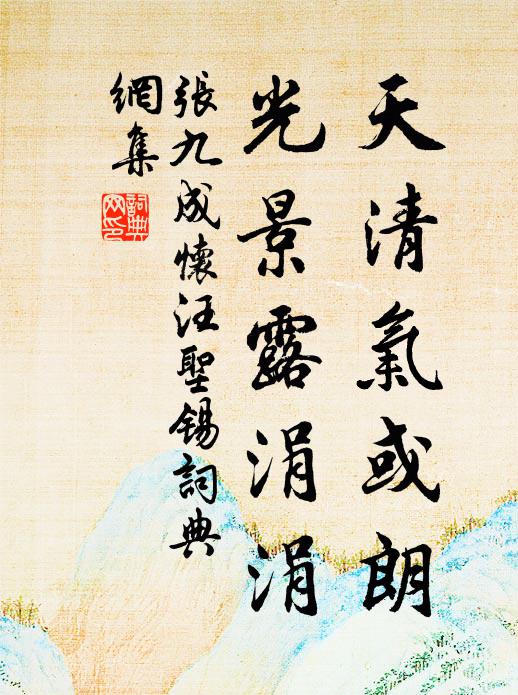 天清氣或朗
光景露涓涓
張九成懷汪聖錫詞典
網集
詞典網印